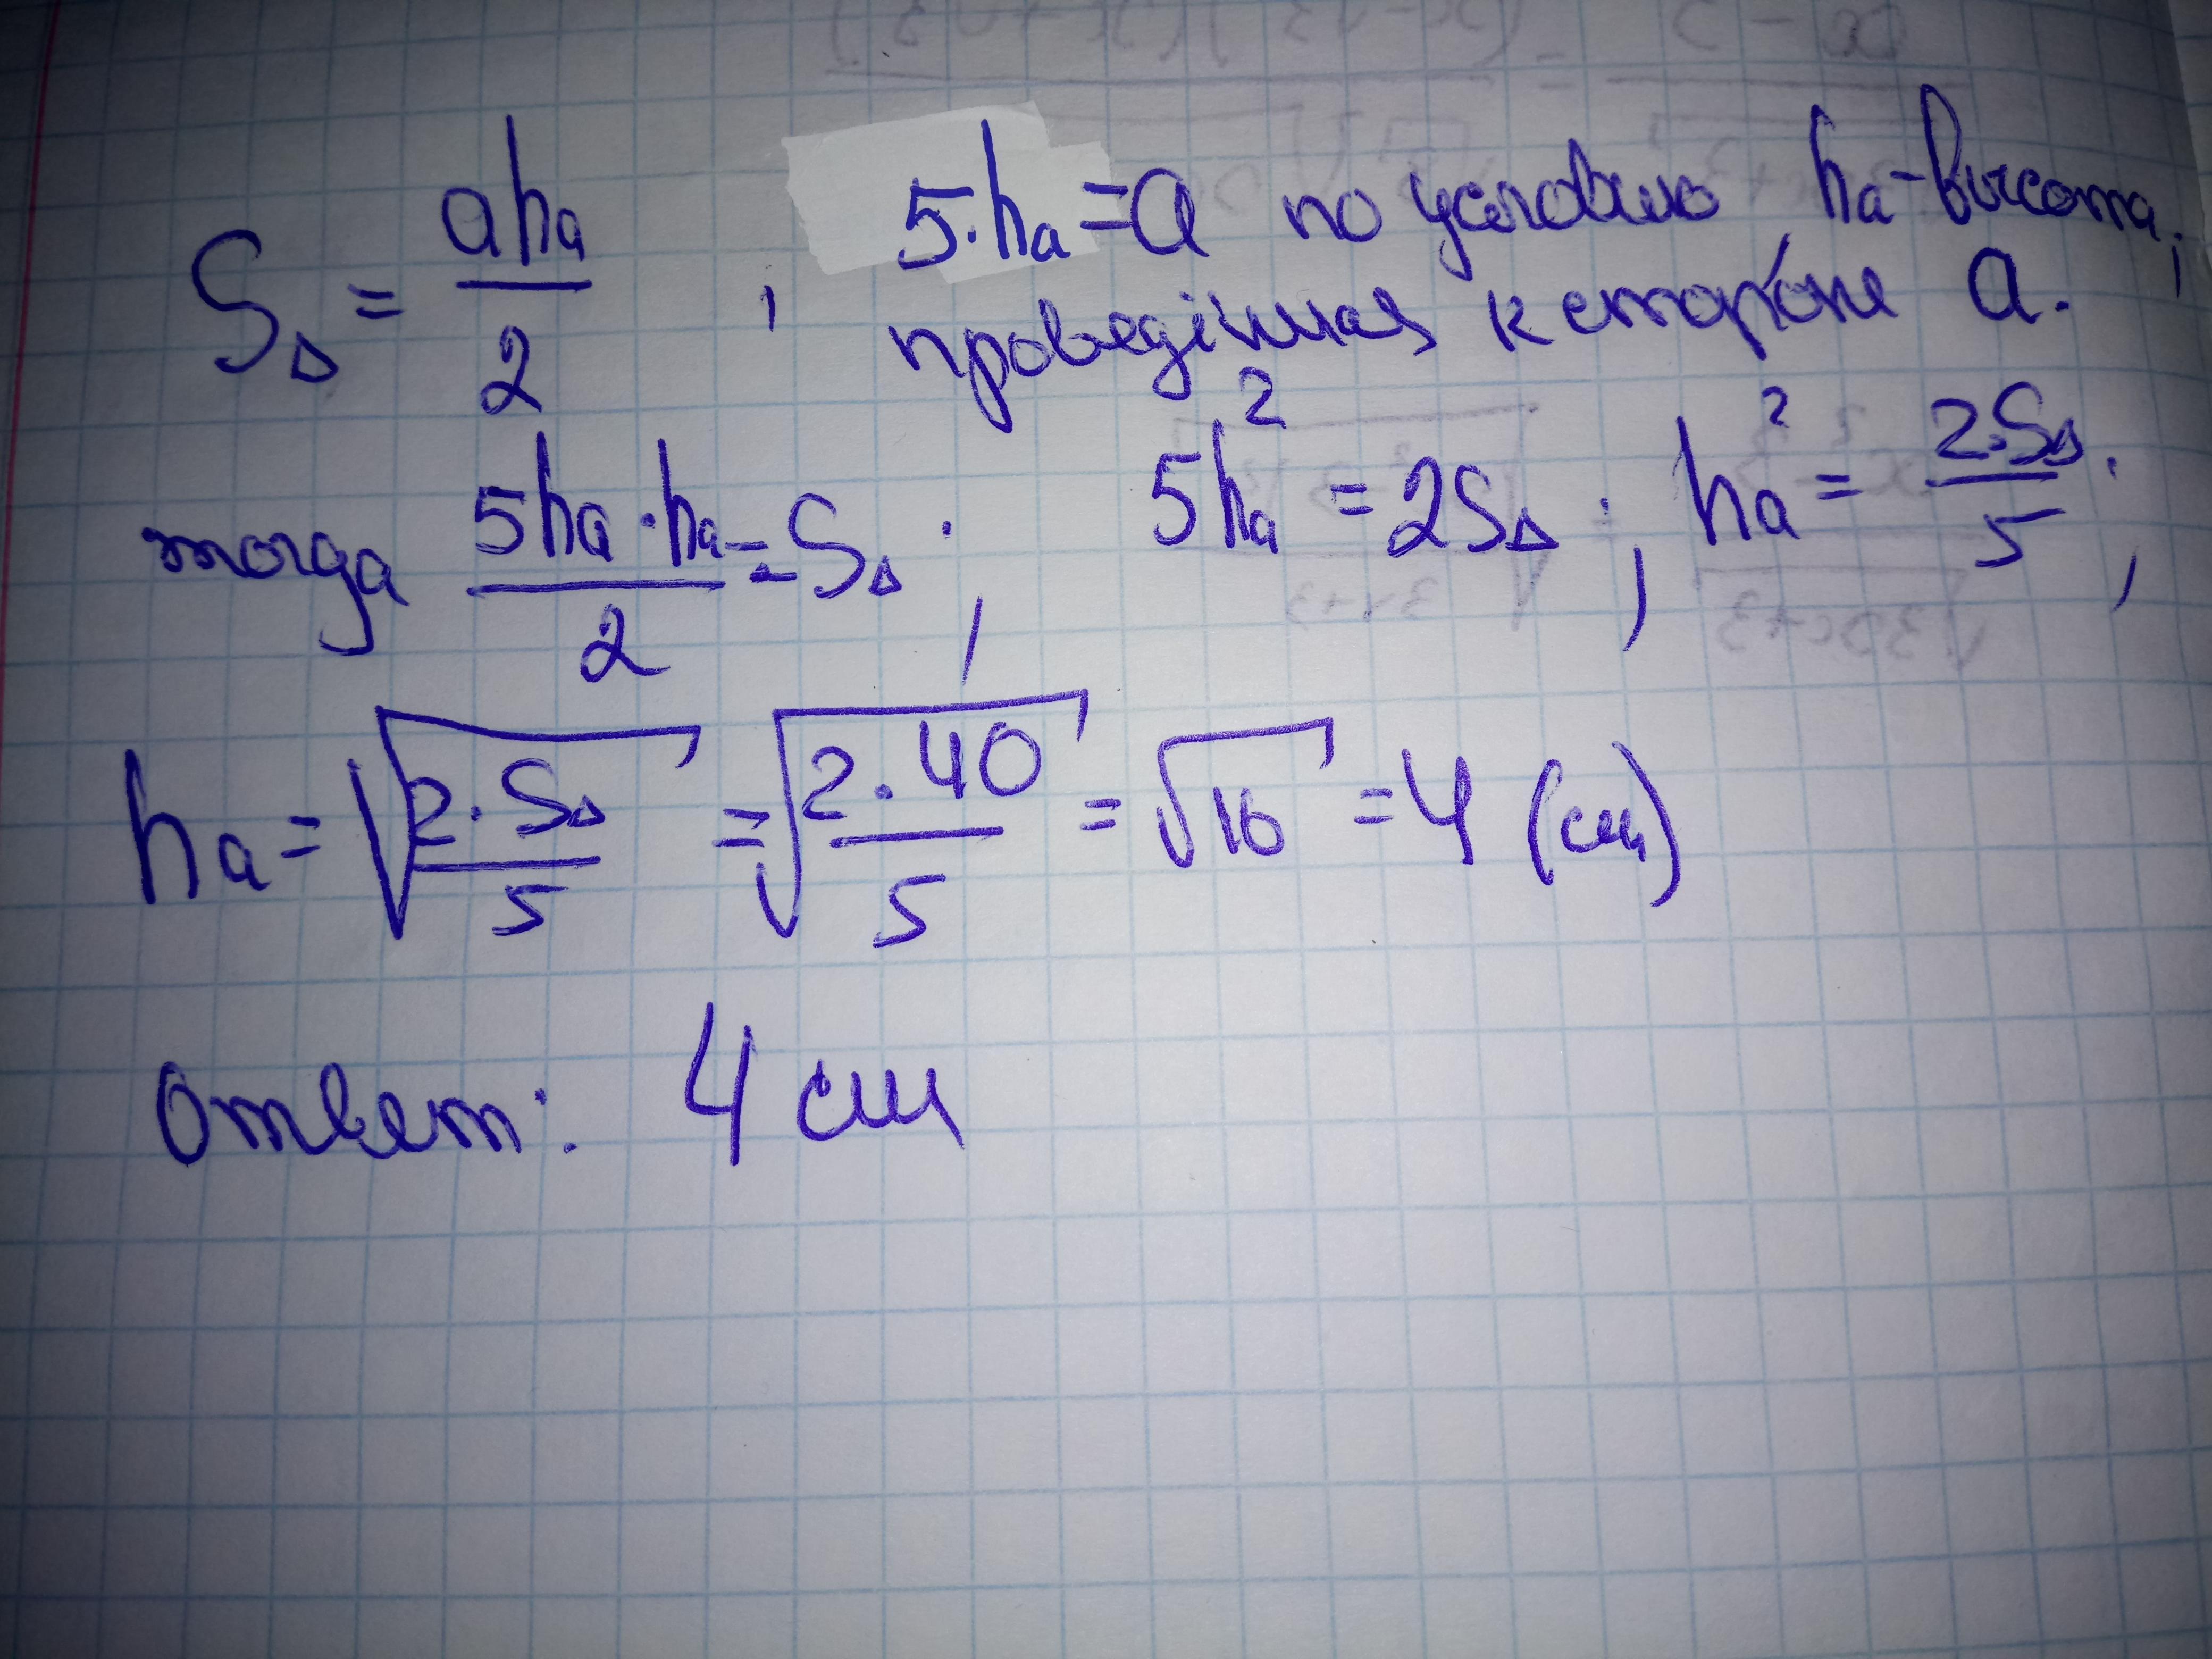 S△ = aha/2 , 5·ha = a по условию, ha - высота,
проведённая к стороне a.
тогда 5ha·ha/2 = S△ ; 5ha² = 2S△ ; ha² = 2·S△/5 ;
ha = √(2·S△/5) = √(2·40/5) = √16 = 4 (см)
Ответ: 4 см